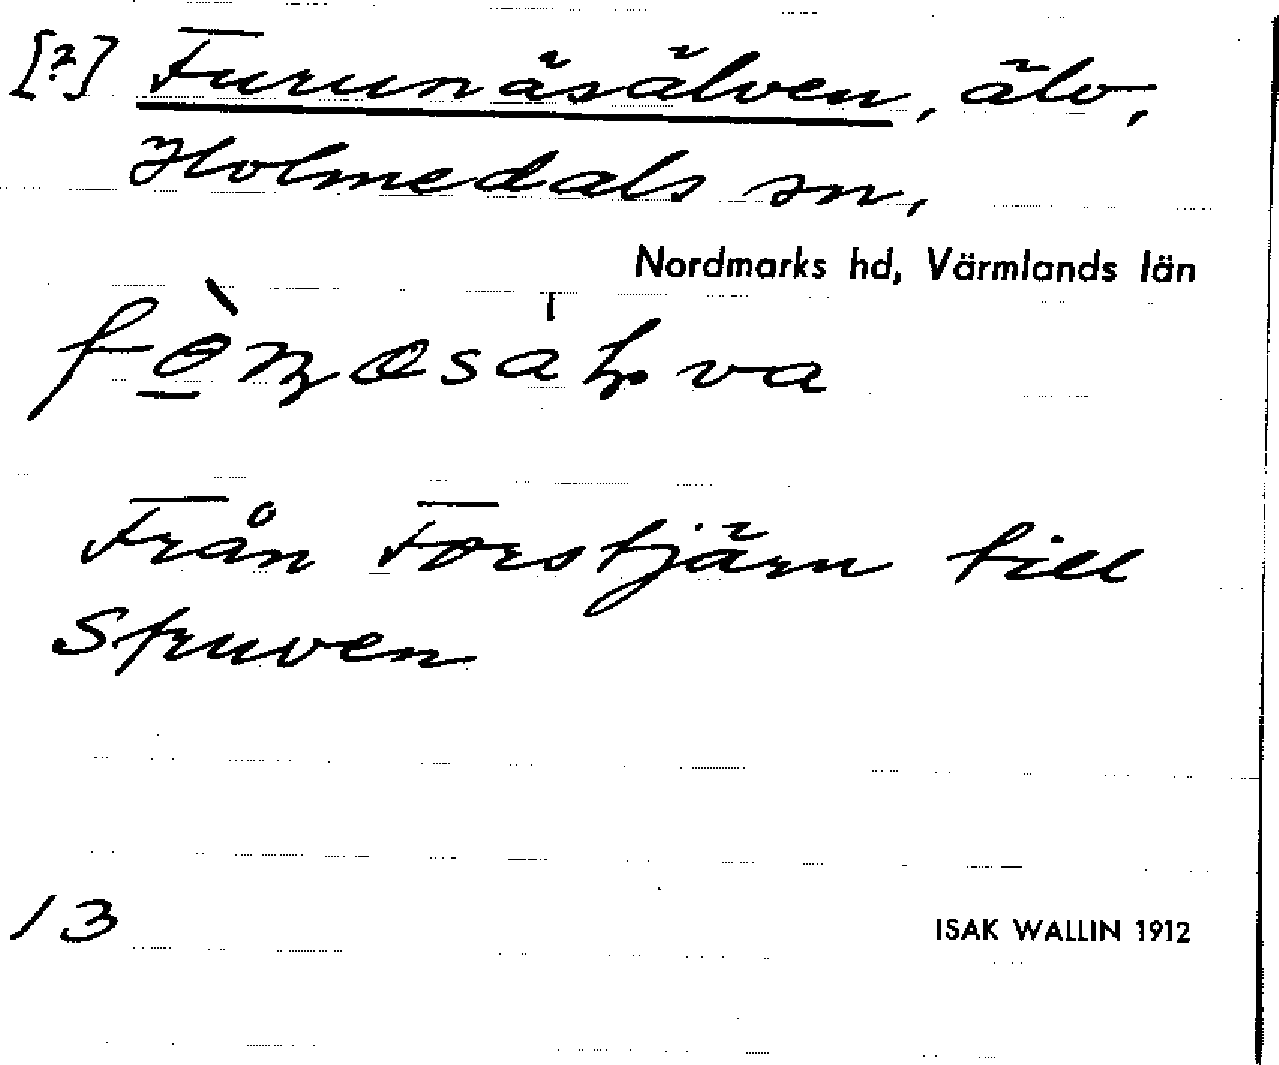 [?] Furunäsälven, älv,
Holmedals sn,
Nordmarks hd, Värmlands län
Från Forstjärn till
Struven
13
ISAK WALLIN 1912